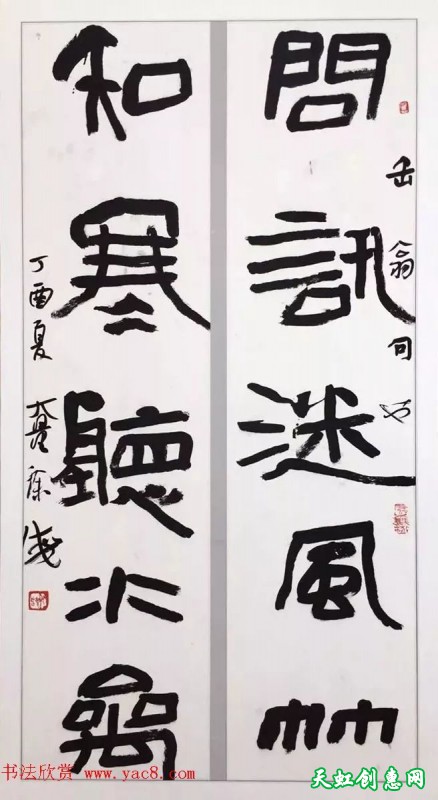 問訊迷風竹
岳翁句也
和寒聽水禽
丁酉夏
书法欣赏 www.yac8.com
天虹创惠网